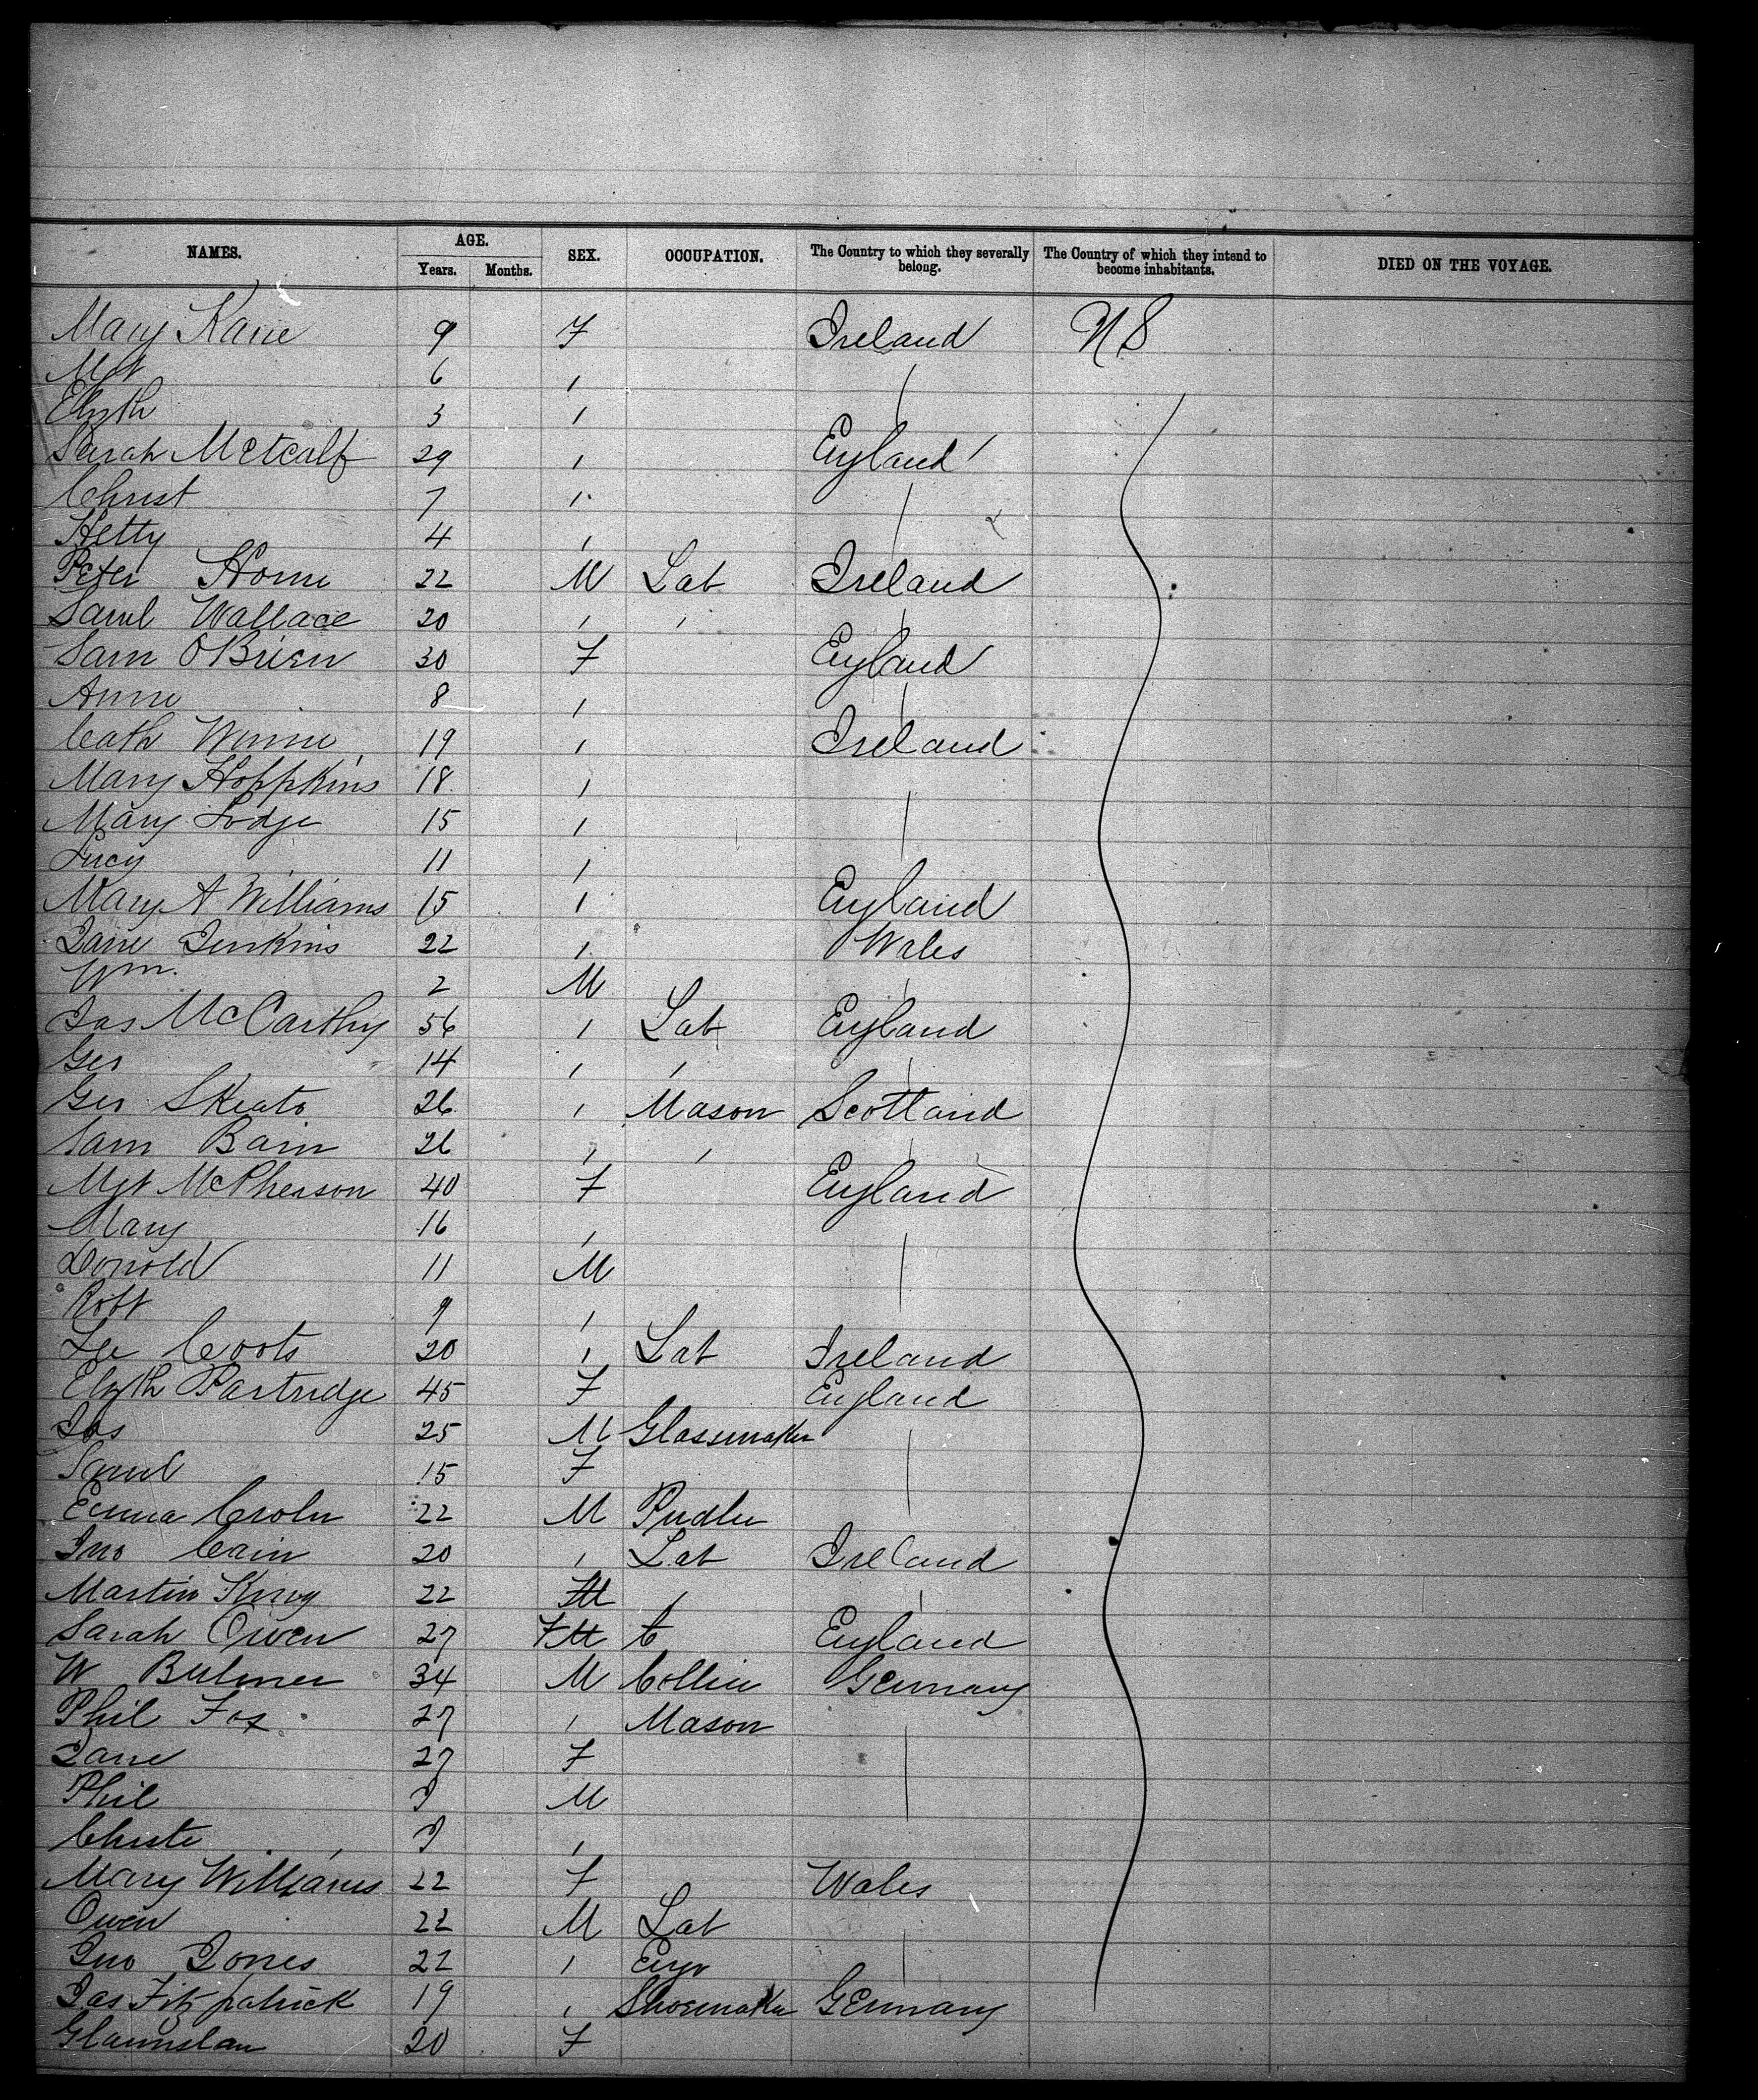 NAMES. AGE. SEX. OCCUPATION. The Country to which they severally belong. The Country of which they intend to become inhabitants. DIED ON THE VOYAGE.
Years. Months.
Mary Kane 9 F Ireland US
Mgt 6 "
Elizth 3 "
Sarah Metcalf 29 " England
Christ 7 "
Hetty 4 "
Peter Horne 22 M Lab Ireland
Saml Wallace 20 " "
Sam OBrien 30 F England
Anne 8 "
Cath Winne 19 " Ireland
Mary Hoppkins 18 "
Mary Lodge 15 "
Lucy 11 "
Mary A Williams 15 " England
Jane Jenkins 22 " Wales
Wm. 2 M
Jas McCarthy 56 " Lab England
Geo 14 " "
Geo Skeats 26 " Mason Scotland
Sam Bain 26 " "
Mgt McPherson 40 F England
Mary 16 "
Donold 11 M
Robt 9 "
Coots 20 " Lab Ireland
Elizth Partridge 45 F England
Jos 25 M Glassmaker
Saml 15 F
Emma 22 M Pudler
Jno Cain 20 " Lab Ireland
Martin King 22 M "
Sarah Owen 27 F England
W Bulmer 34 M Collier Germany
Phil Fox 27 " Mason
Jane 27 F
Phil M
Christe "
Mary Williams 22 F Wales
Owen 22 M Lab
Jno Jones 22 " Engr
Jas Fitzpatrick 19 " Shoemaker Germany
20 F